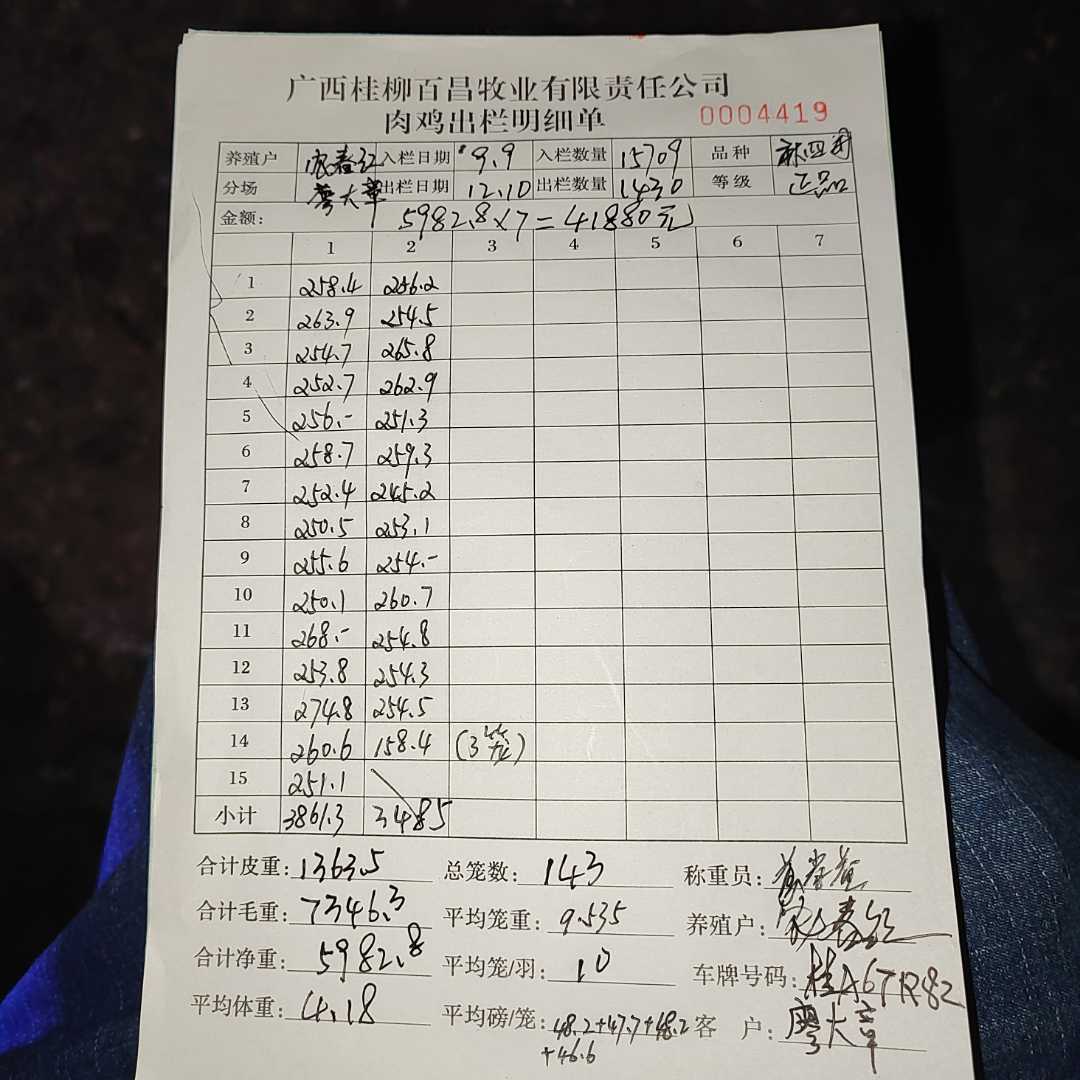 广西桂柳百昌牧业有限责任公司
肉鸡出栏明细单 0004419
养殖户 入栏日期 9.9 入栏数量 15709 品种 麻四
分场 廖大章 出栏日期 12.10 出栏数量 1430 等级 正品
金额: 5982.8×7=41880元
1 2 3 4 5 6 7
1 258.4 256.2
2 263.9 254.5
3 254.7 265.8
4 252.7 262.9
5 256.- 251.3
6 258.7 259.3
7 252.4 245.2
8 250.5 253.1
9 255.6 254.-
10 250.1 260.7
11 268.- 254.8
12 253.8 254.3
13 274.8 254.5
14 260.6 158.4 (3笼)
15 251.1
小计 3861.3 3485
合计皮重: 1363.5 总笼数: 143 称重员:
合计毛重: 7346.3 平均笼重: 9.535 养殖户:
合计净重: 5982.8 平均笼/羽: 10 车牌号码: 桂A6TR82
平均体重: 4.18 平均磅/笼: 48.2+47.7+48.2 客 户: 廖大章
+46.6